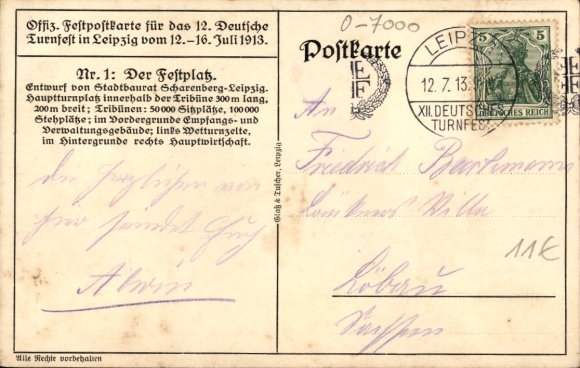 Offiz. Festpostkarte für das 12. Deutsche
Turnfest in Leipzig vom 12.–16. Juli 1913.
Nr. 1: Der Festplatz.
Entwurf von Stadtbaurat Scharenberg-Leipzig.
Hauptturnplatz innerhalb der Tribüne 300 m lang,
200 m breit; Tribünen: 50000 Sitzplätze, 100000
Stehplätze; im Vordergrunde Empfangs- und
Verwaltungsgebäude; links Wetturnzelte,
im Hintergrunde rechts Hauptwirtschaft.
von
hier sendet Euch
Alwin
Alle Rechte vorbehalten
Glatz & Tuscher, Leipzig
0-7000
Postkarte
LEIPZ
12.7.13
XII. DEUTSCHES
TURNFEST
5 5
DEUTSCHES REICH
An
Friedrich
Villa
11€
Löbau
Sachsen